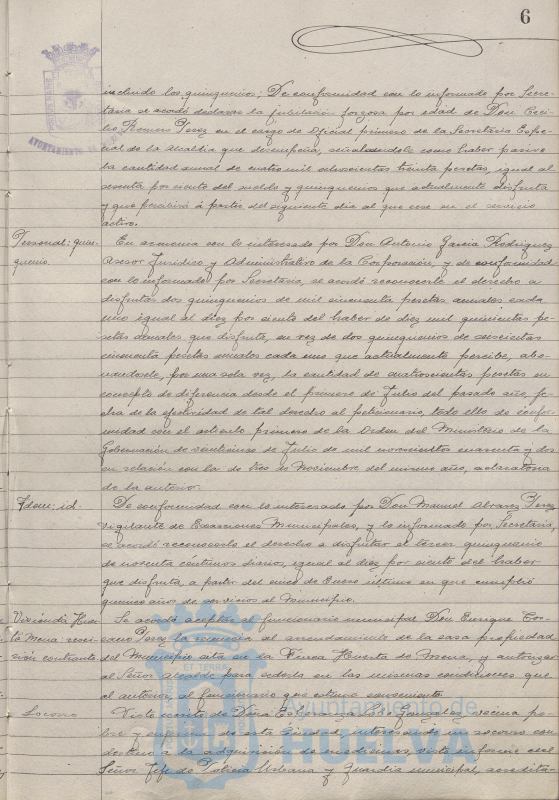 6
incluido los quinquenios; De conformidad con lo informado por Secre-
taria se acordó declarar la jubilación forzosa por edad de Don Ceci-
lio Romero Pérez en el cargo de Oficial primero de la Secretaria Espe-
cial de la Alcaldia que desempeña, señalandole como haber pasivo
la cantidad anual de cuatro mil ochocientas treinta pesetas, igual al
sesenta por ciento del sueldo y quinquenios que actualmente disfruta
y que percibirá á partir del siguiente dia al que cese en el servicio
activo.
Personal: quin-
quenio.
En armonia con lo interesado por Don Antonio Garcia Rodriguez
Asesor Juridico y Administrativo de la Corporación, y de conformidad
con lo informado por Secretaria, se acordó reconocerle el derecho a
disfrutar dos quinquenios de mil cincuenta pesetas anuales cada
uno igual al diez por ciento del haber de diez mil quinientas pe-
setas anuales que disfruta, en vez de dos quinquenios de seiscientas
cincuenta pesetas anuales cada uno que actualmente percibe, abo-
nandosele, por una sola vez, la cantidad de cuatrocientas pesetas en
concepto de diferencia desde el primero de Julio del pasado año, fe-
cha de la efectividad de tal derecho al peticionario, todo ello de confor-
midad con el articulo primero de la Orden del Ministerio de la
Gobernación de veintinueve de Julio de mil novecientos cuarenta y dos
en relación con la de tres de Noviembre del mismo año, aclaratoria
de la anterior.
Idem: id.
De conformidad con lo interesado por Don Manuel Alvarez Perez
vigilante de Exacciones Municipales, y lo informado por Secretaria,
se acordó reconocerle el derecho a disfrutar el tercer quinquenio
de noventa centimos diarios, igual al diez por ciento del haber
que disfruta, a partir del cinco de Enero último en que cumplió
quince años de servicios al Municipio.
Vivienda Huer-
ta Mena: resci-
sión contrato.
Se acordó aceptar al funcionario municipal Don Enrique
Perez la renuncia al arrendamiento de la casa propiedad
del Municipio sita en la Finca Huerta de Mena, y autorizar
al Señor Alcalde para cederla en las mismas condiciones que
al anterior al funcionario que estime conveniente.
Socorro
Visto escrito de Doña Esperanza vecina po-
bre y enferma de esta Ciudad, interesando un socorro con
destino a la adquisición de medicinas, visto informe del
Señor Jefe de Policia Urbana y Guardia municipal, acredita-
AYUNTAMIENTO DE
ET TERRA
Ayuntamiento de
HUELVA